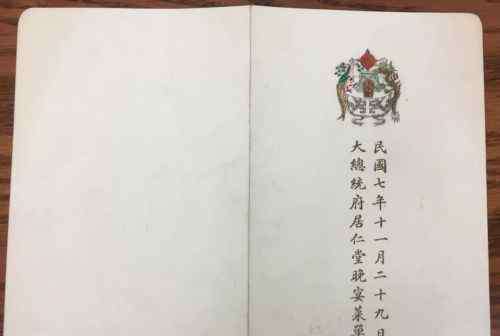 民國七年十一月二十九日
大總統府居仁堂晚宴菜單